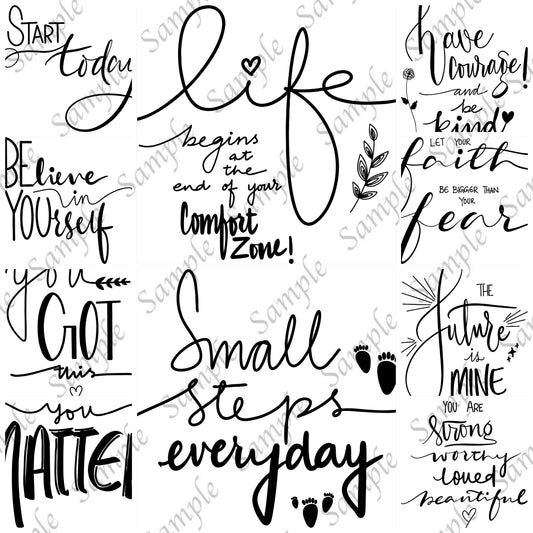 START
today
BElieve
in
YOUrself
you
GOT
this
you
MATTER
life
begins
at
the
end of your
Comfort
Zone!
Small
steps
everyday
have
courage!
and
be
kind!
LET YOUR
faith
BE BIGGER THAN
YOUR
fear
THE
Future
is
MINE
YOU ARE
Strong
worthy
loved
beautiful
Sample
Sample
Sample
Sample
Sample
Sample
Sample
Sample
Sample
Sample
Sample
Sample